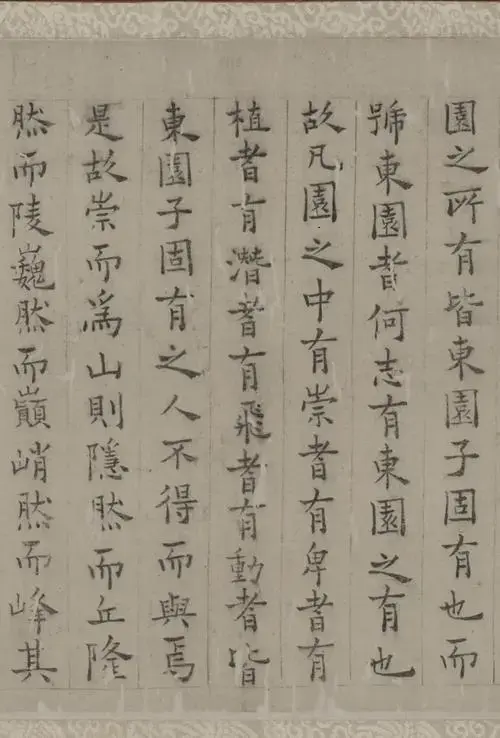 園之所有皆東園子固有也而
號東園者何志有東園之有也
故凡園之中有崇者有卑者有
植者有潛者有飛者有動者皆
東園子固有之人不得而與焉
是故崇而爲山則隱然而丘隆
然而陵巍然而巔峭然而峰其